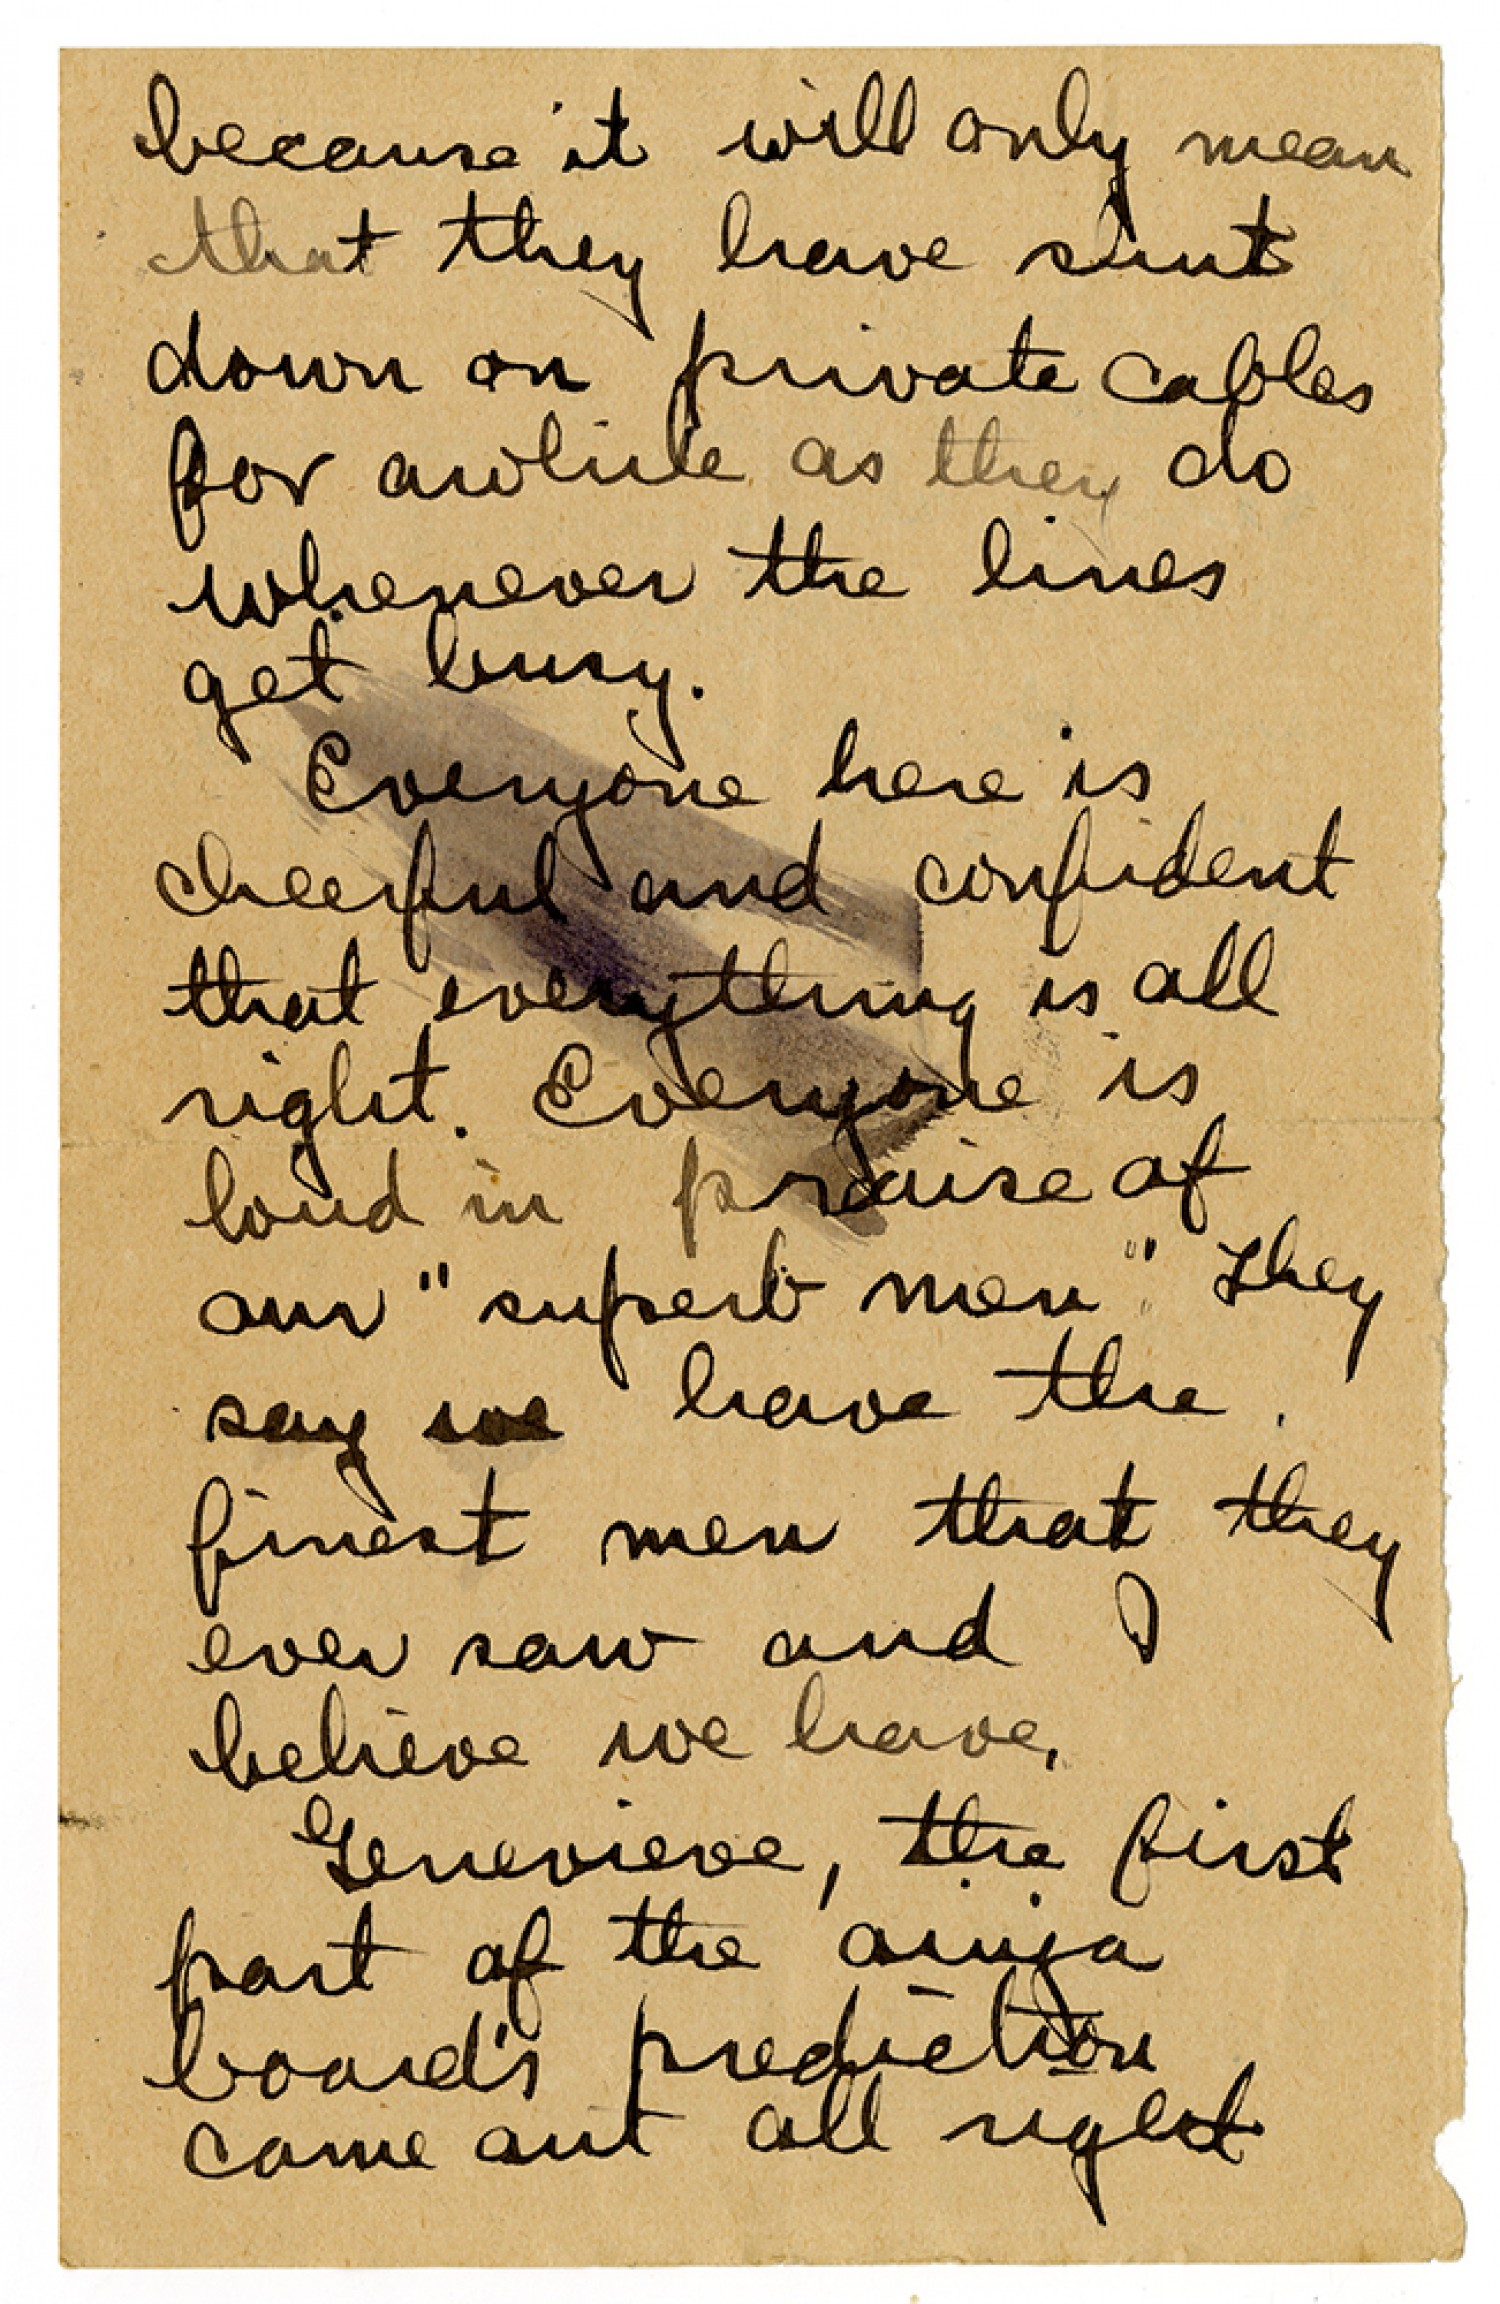 because it will only mean
that they have shut
down on private cables
for awhile as they do
whenever the lines
get busy.
Everyone here is
cheerful and confident
that everything is all
right. Everyone is
loud in praise of
our "superb men" They
say we have the
finest men that they
ever saw and I
believe we have.
Genevieve, the first
part of the ouija
board's prediction
came out all right